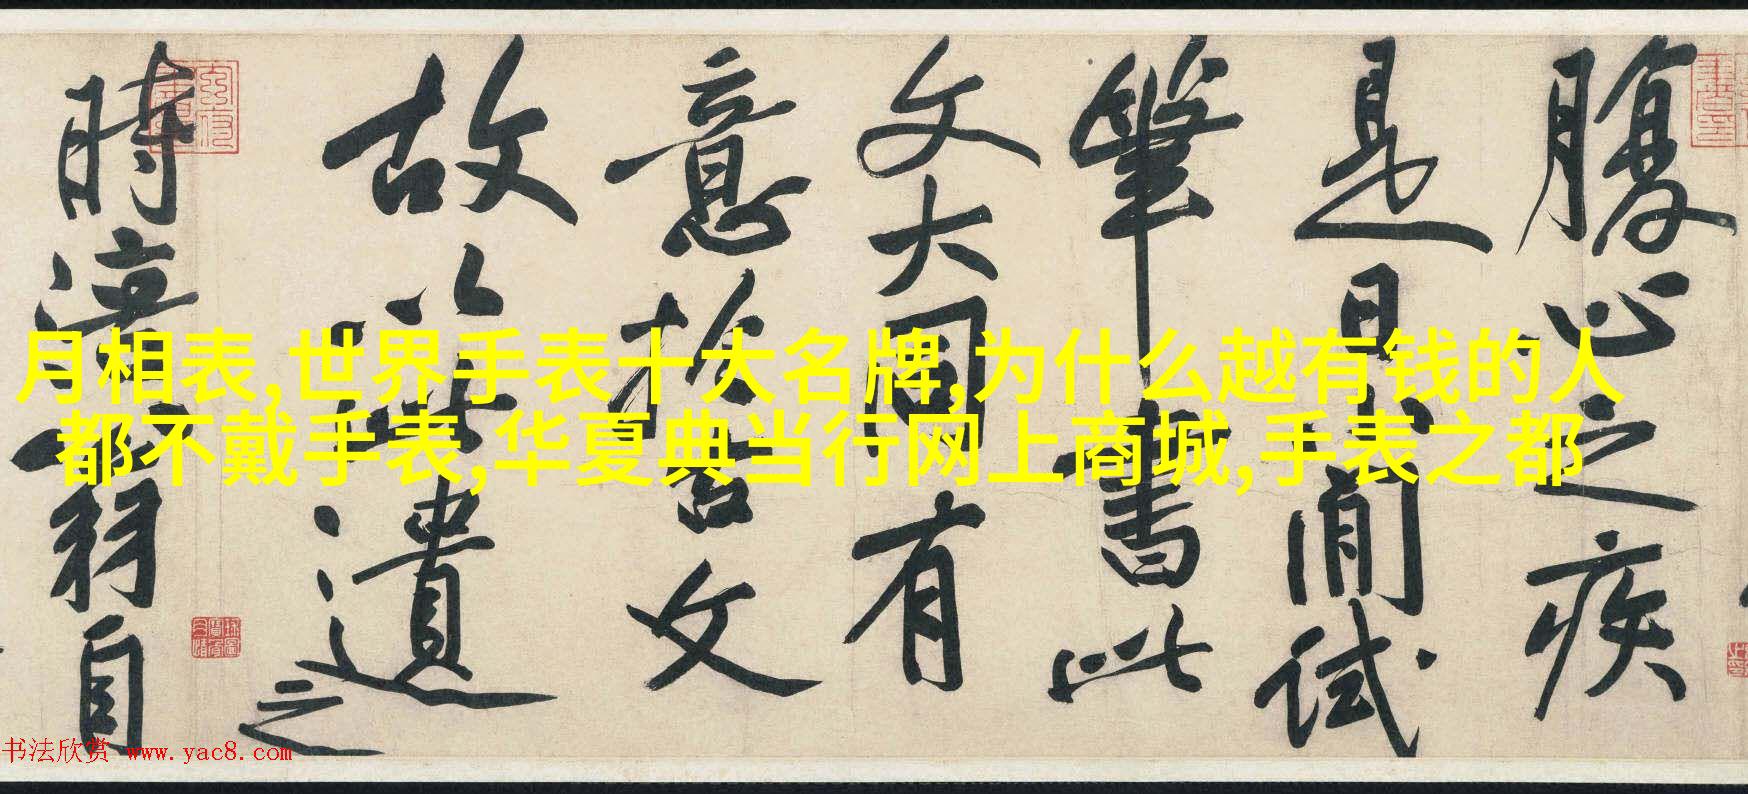 月相表,世界手表十大名牌,为什么越有钱的人
都不戴手表,华夏典当行网上商城,手表之都
腹心之疾
是日閒試
筆書此
文大同有
意於古文
故遺之
時涪翁自
书法欣赏 www.yac8.com